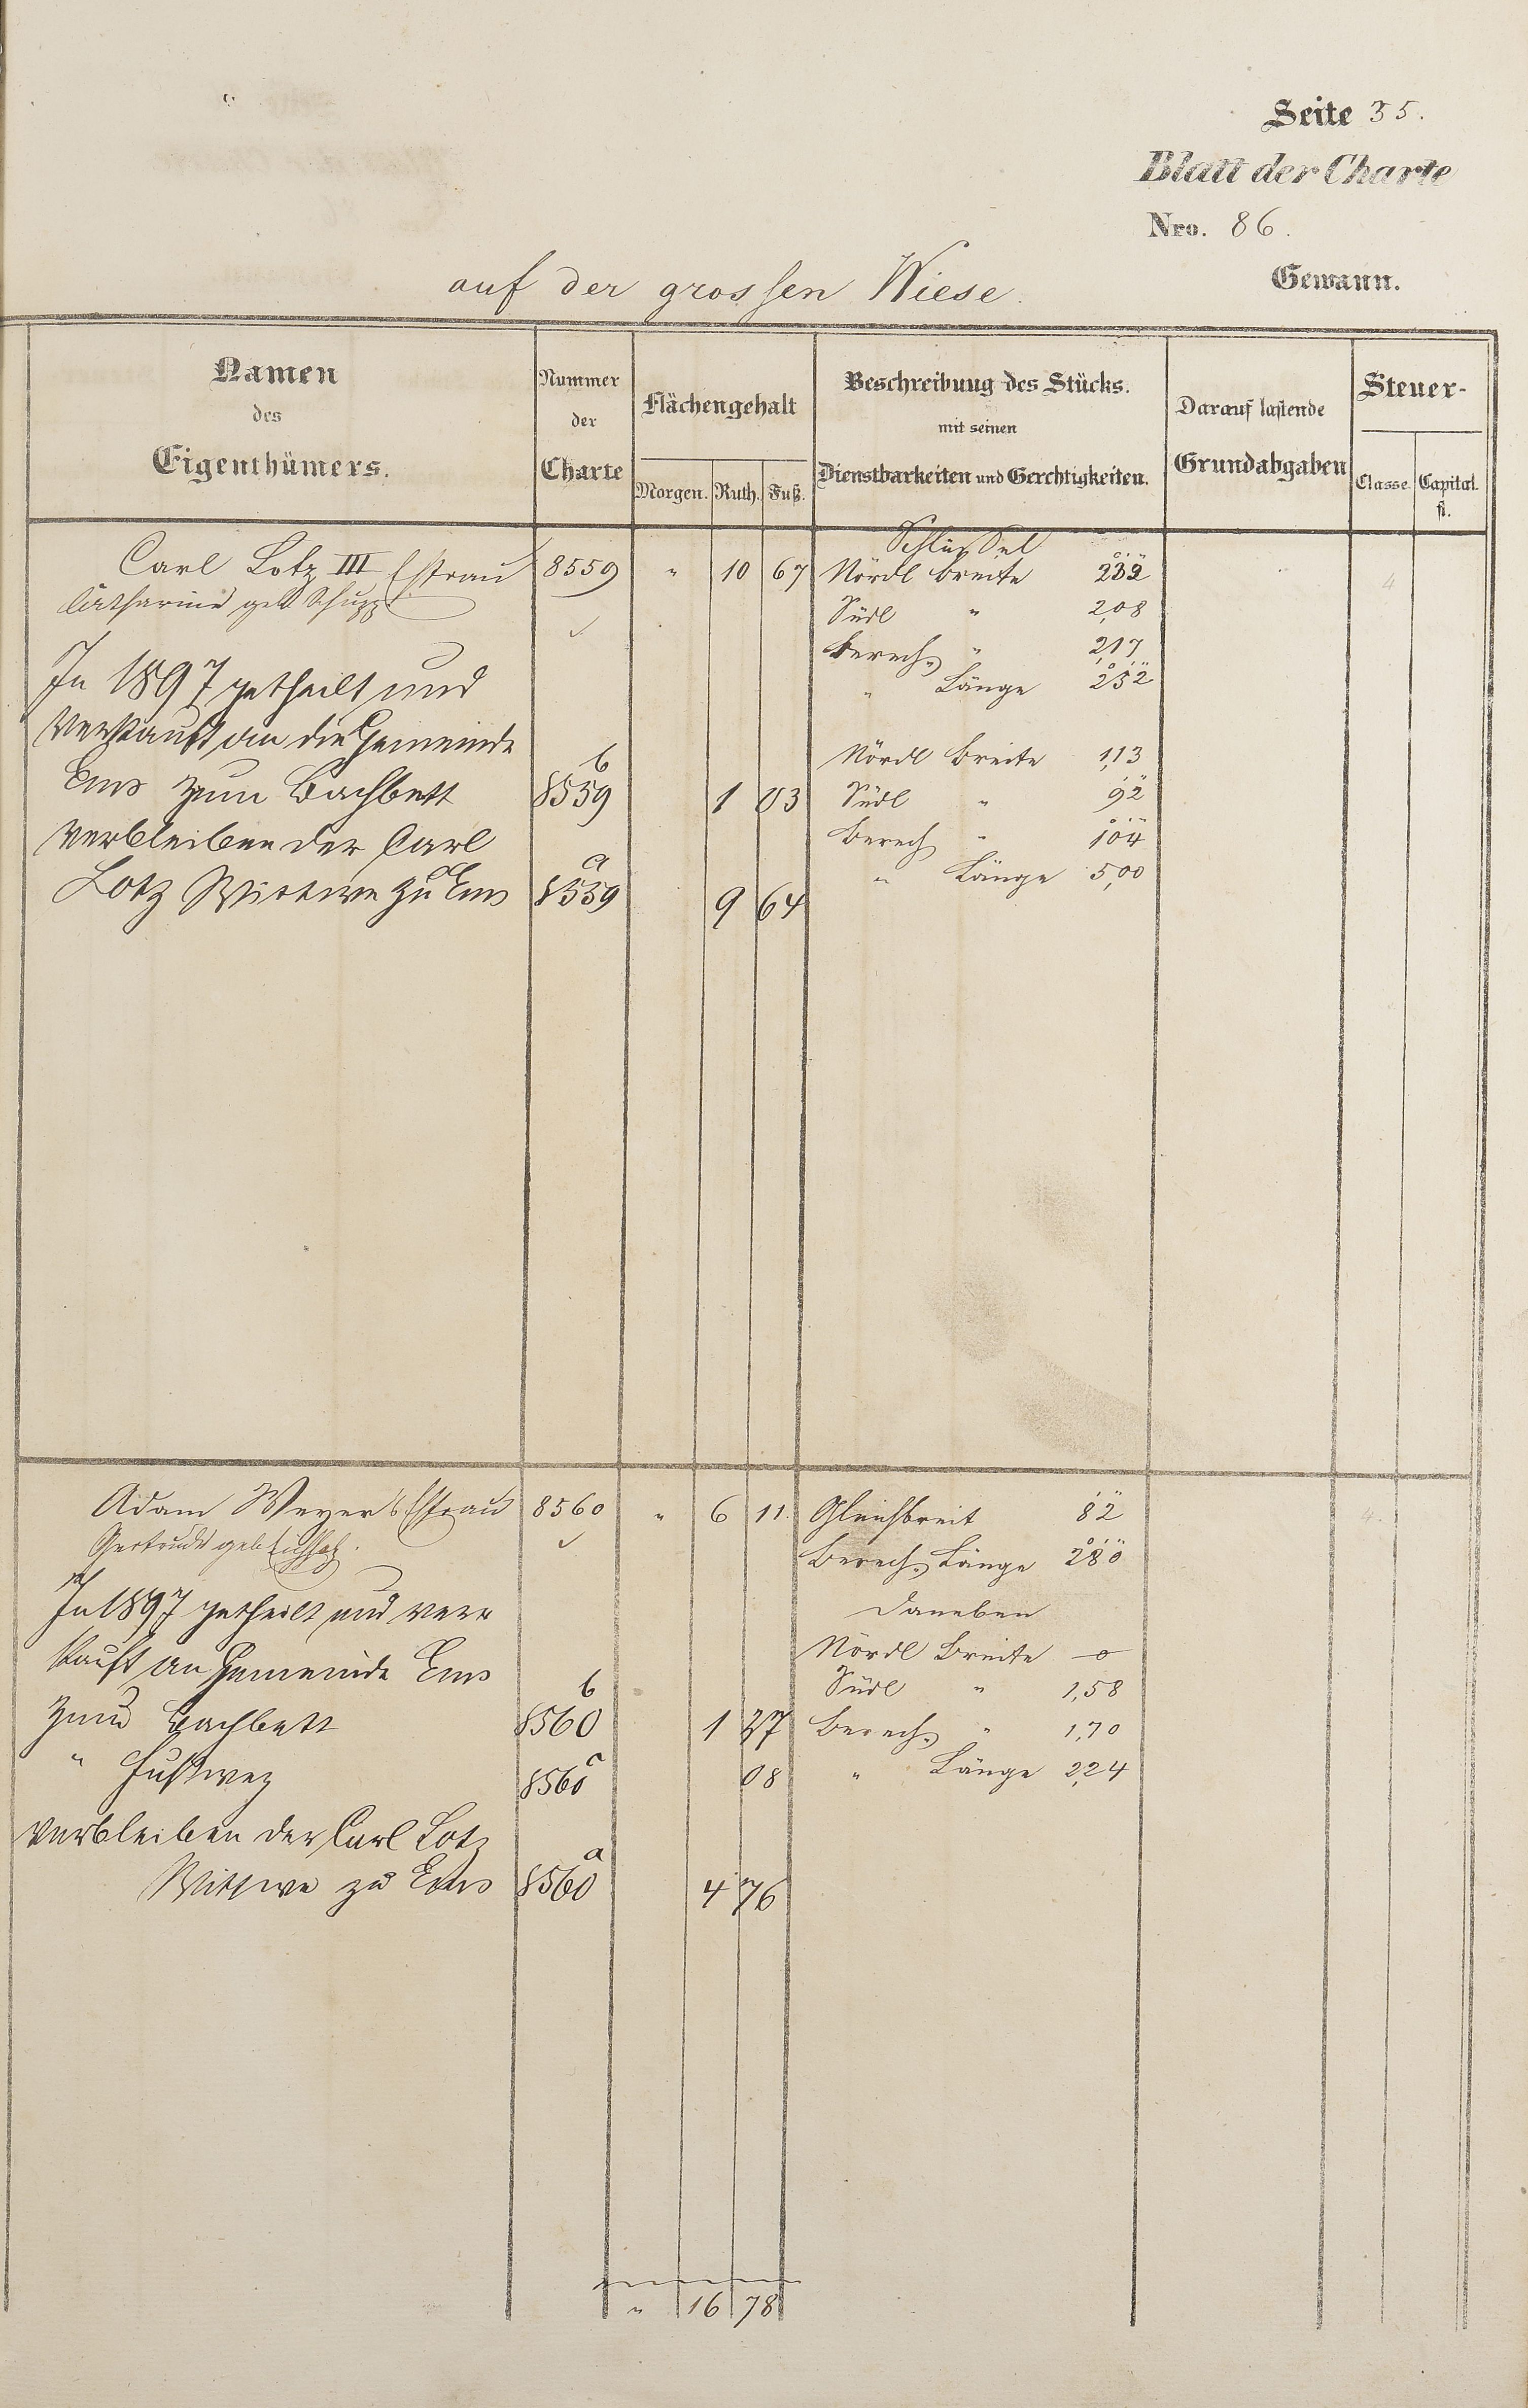 Seite 35.
Blatt der Charte
Nro. 86.
auf der grossen Wiese. Gewann.
Namen des Eigenthümers.
Nummer der Charte
Flächengehalt
Morgen. Ruth. Fuß.
Beschreibung des Stücks. mit seinen Dienstbarkeiten und Gerechtigkeiten.
Darauf lastende Grundabgaben
Steuer-
Classe. Capital. fl.
Schlüssel
Carl Lotz III Ehfrau 8559 " 10 67 Nördl Breite 232
Catharina geb Schupp Südl " 2,08
Berech. " 217
In 1897 getheilt und " Länge 252
verkauft an die Gemeinde Nördl Breite 1,13
Ems zum Bachbett 8559 b 1 03 Südl " 92
verbleiben der Carl Berech " 104
Lotz Wittwe zu Ems 8559 a 9 64 " Länge 5,00
Adam Weyer's Ehfrau 8560 " 6 11. Gleichbreit 82 4.
Gertrude geb. Berech. Länge 280
In 1897 getheilt und ver Daneben
kauft an Gemeinde Ems Nördl Breite 0
Südl " 1,58
zum Bachbett 8560 b 1 27 Berech. " 1,70
" Fußweg 8560 c 08 " Länge 2,24
verbleiben der Carl Lotz
Wittwe zu Ems 8560 a 4 76
" 16 78